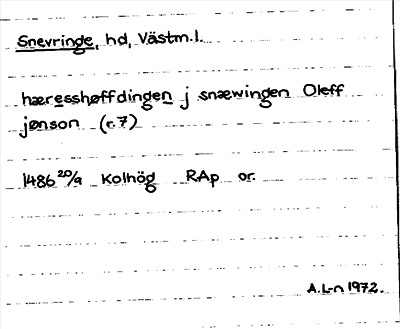 Snevringe, hd, Västm. l.
hæresshøffdingen j snæwingen Oleff
jønson (r. 7)
1486 20/9 Kolhög RAp or.
A. L-n 1972.